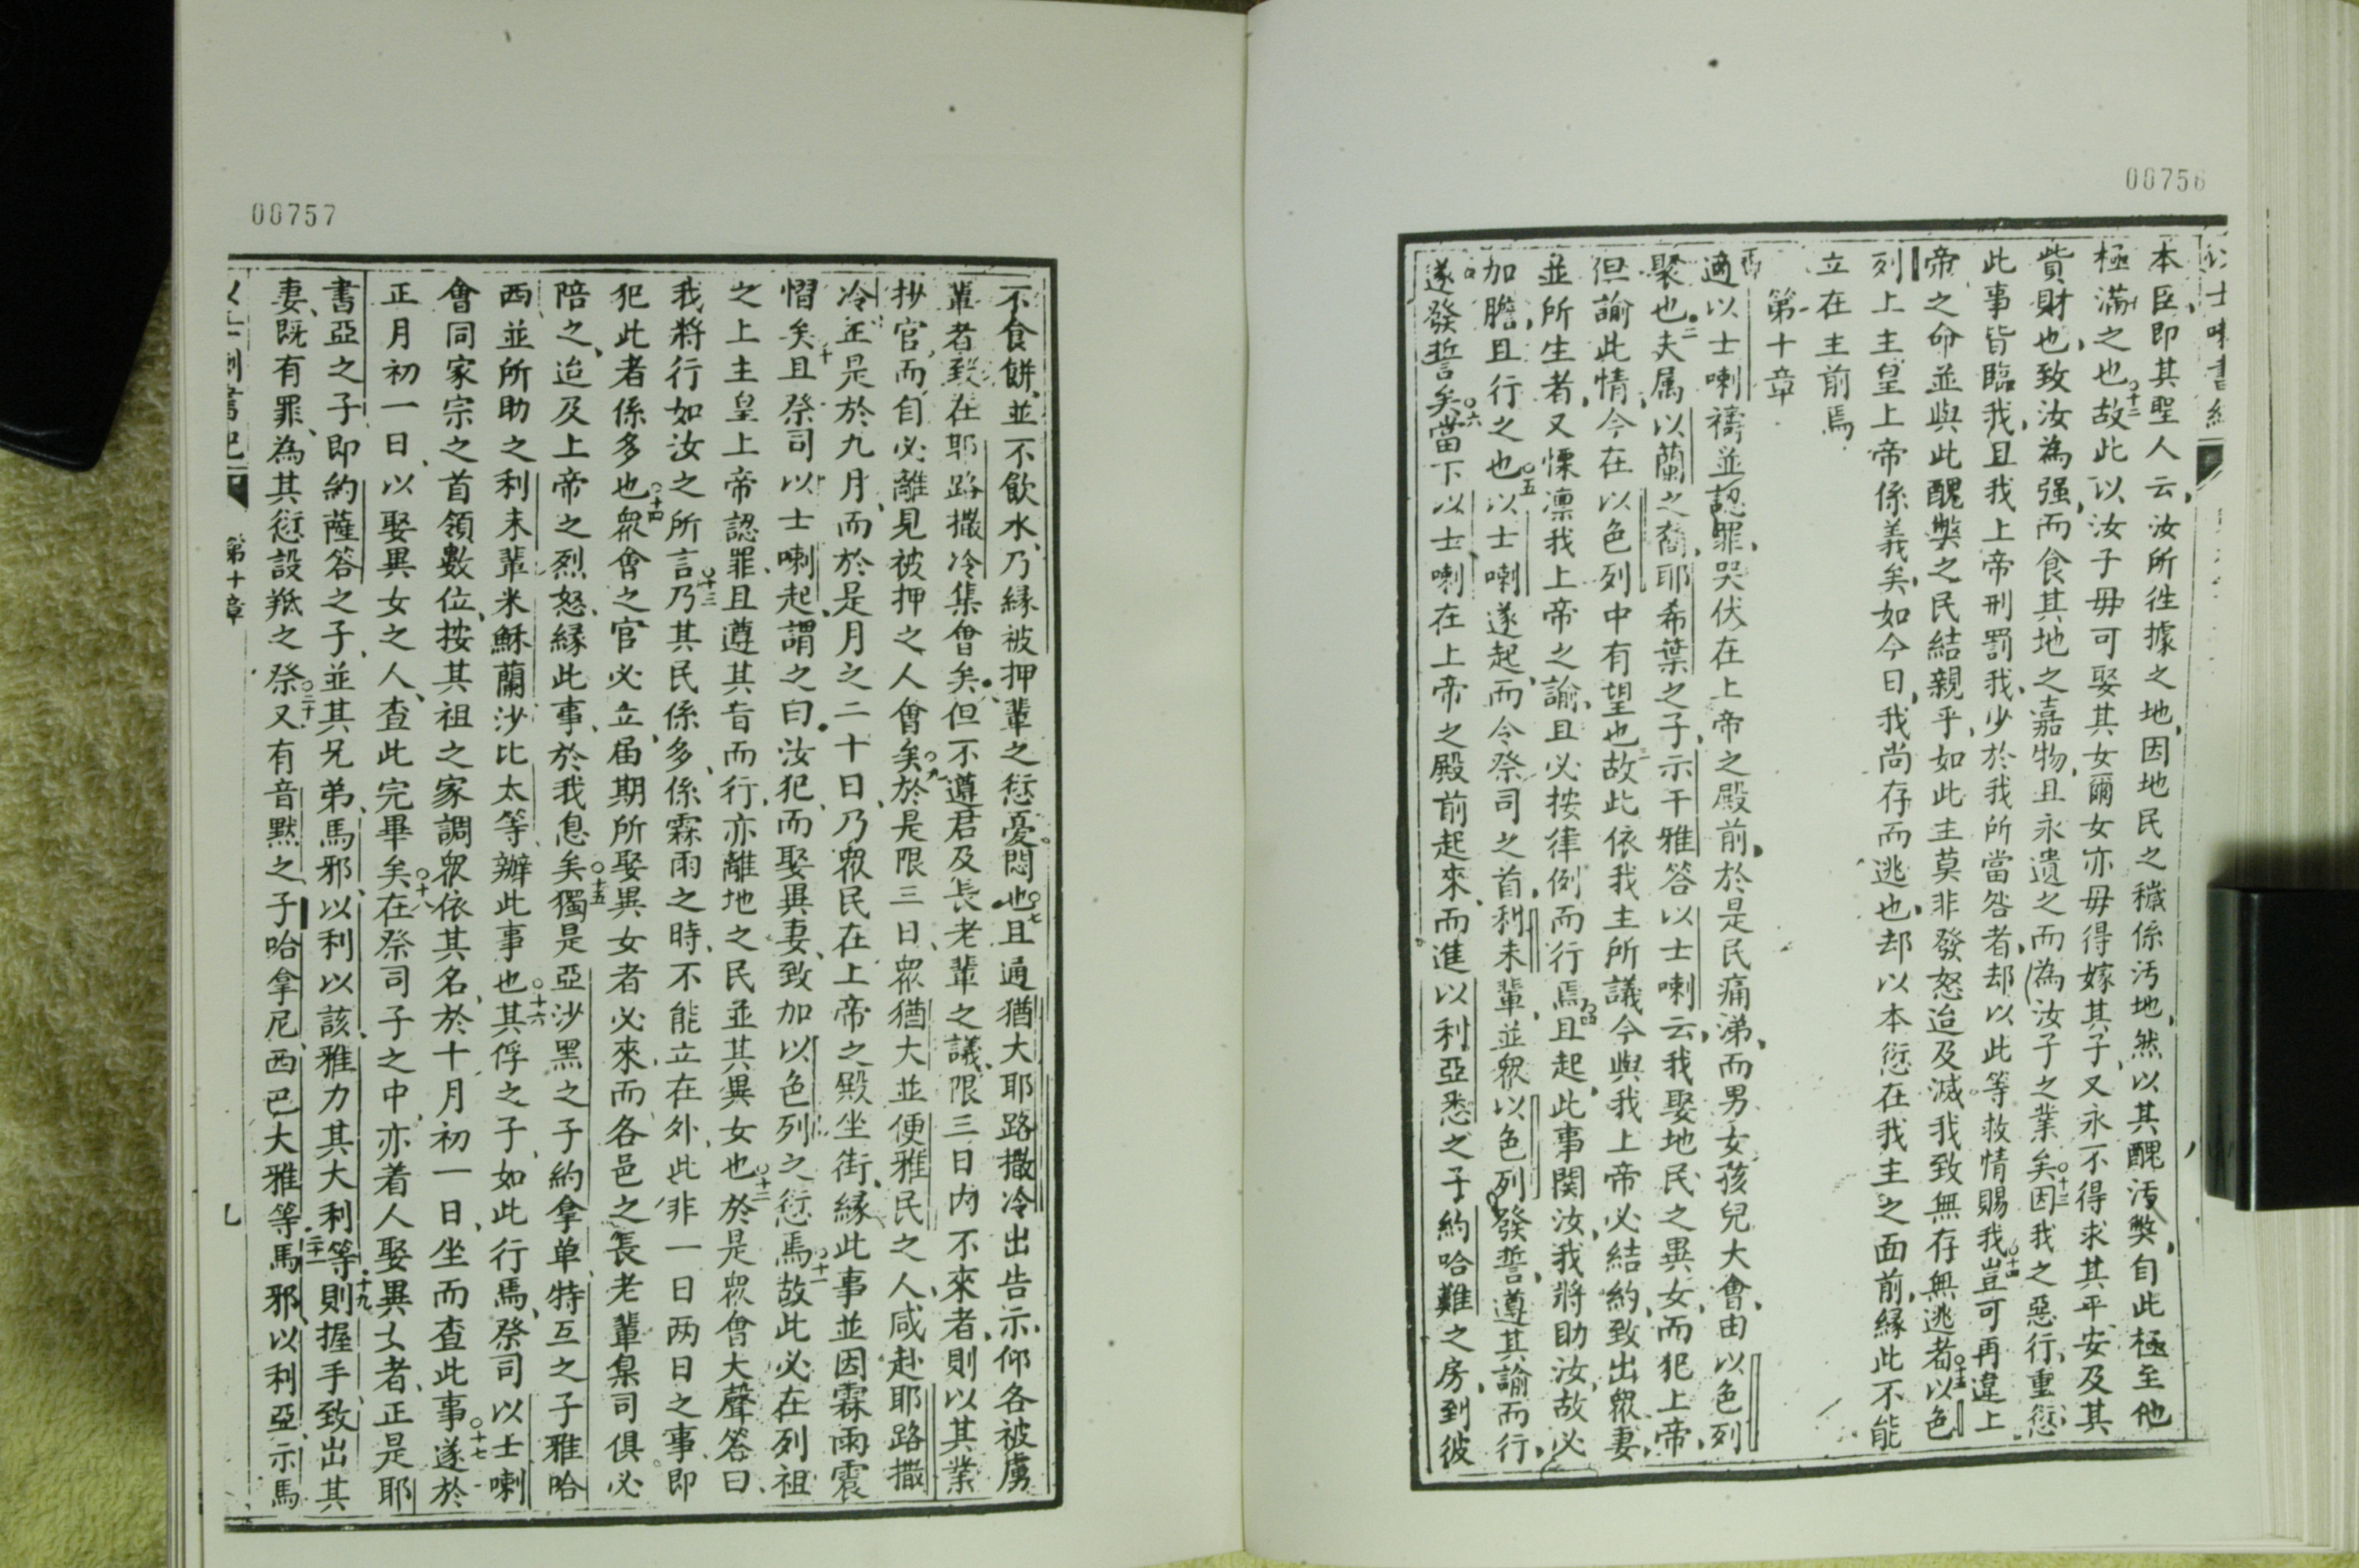 00756
本臣即其聖人云汝所徃據之地因地民之穢係汚地然以其醜汚弊自此極至他
極滿之也○十二故此以汝子毋可娶其女爾女亦毋得嫁其子又永不得求其平安及其
貲財也致汝為强而食其地之嘉物且永遺之而為汝子之業矣○十三因我之惡行重愆
此事皆臨我且我上帝刑罰我少於我所當咎者却以此等救情賜我○十四豈可再違上
帝之命並與此醜弊之民結親乎如此主莫非發怒迨及滅我致無存無逃者○十五以色
列上主皇上帝係義矣如今日我尚存而逃也却以本愆在我主之面前緣此不能
立在主前焉
第十章
適以士喇禱並認罪哭伏在上帝之殿前於是民痛涕而男女孩兒大會由以色列
聚也二夫属以蘭之裔耶希葉之子示干雅答以士喇云我娶地民之異女而犯上帝
但諭此情今在以色列中有望也三故此依我主所議今與我上帝必結約致出眾妻
並所生者又慄凛我上帝之諭且必按律例而行焉○四且起此事関汝我將助汝故必
加膽且行之也○五以士喇遂起而令祭司之首利未輩並眾以色列發誓遵其諭而行
遂發誓矣○六當下以士喇在上帝之殿前起來而進以利亞悉之子約哈難之房到彼
00757
不食餅並不飲水乃緣被押輩之愆憂悶也○七且通猶大耶路撒冷出告示仰各被虜
輩者致在耶路撒冷集會矣但不遵君及長老輩之議限三日内不來者則以其業
抄官而自必離見被押之人會矣○九於是限三日眾猶大並便雅民之人咸赴耶路撒
冷正是於九月而於是月之二十日乃眾民在上帝之殿坐街緣此事並因霖雨震
慴矣十且祭司以士喇起謂之曰汝犯而娶異妻致加以色列之愆焉○十一故此必在列祖
之上主皇上帝認罪且遵其旨而行亦離地之民並其異女也○十二於是眾會大聲答曰
我將行如汝之所言○十三乃其民係多係霖雨之時不能立在外此非一日两日之事即
犯此者係多也○十四眾會之官必立届期所娶異女者必來而各邑之長老輩臬司俱必
陪之迨及上帝之烈怒緣此事於我息矣○十五獨是亞沙黑之子約拿单特互之子雅哈
西並所助之利未輩米穌蘭沙比太等辦此事也○十六其俘之子如此行焉祭司以士喇
會同家宗之首領數位按其祖之家調眾依其名於十月初一日坐而查此事○十七遂於
正月初一日以娶異女之人查此完畢矣○十八在祭司子之中亦着人娶異女者正是耶
書亞之子即約薩答之子並其兄弟馬邪以利以該雅力其大利等十九則握手致出其
妻既有罪為其愆設羝之祭○二十又有音黙之子哈拿尼西巴大雅等二十一馬邪以利亞示馬
第十章